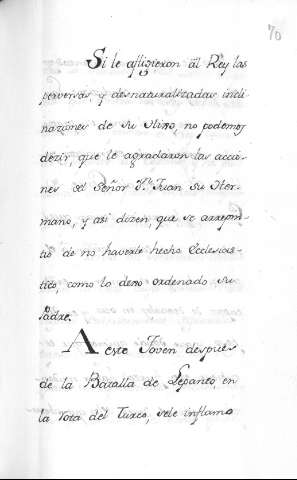 70
Si le afligieron ál Rey las
perversas, y desnaturalizadas incli
naziónes de su Hixo, no podemos
dezir, que le agradaron las accio-
nes del Señor Dn. Juan su Her-
mano, y asi dizen, que se arrepin-
tió de no haverle hecho Eclesias-
tico, como lo dexo ordenado su
Padre.
A este Joven despues
de la Batalla de Lepanto, en
la rota del Turco, sele inflamo